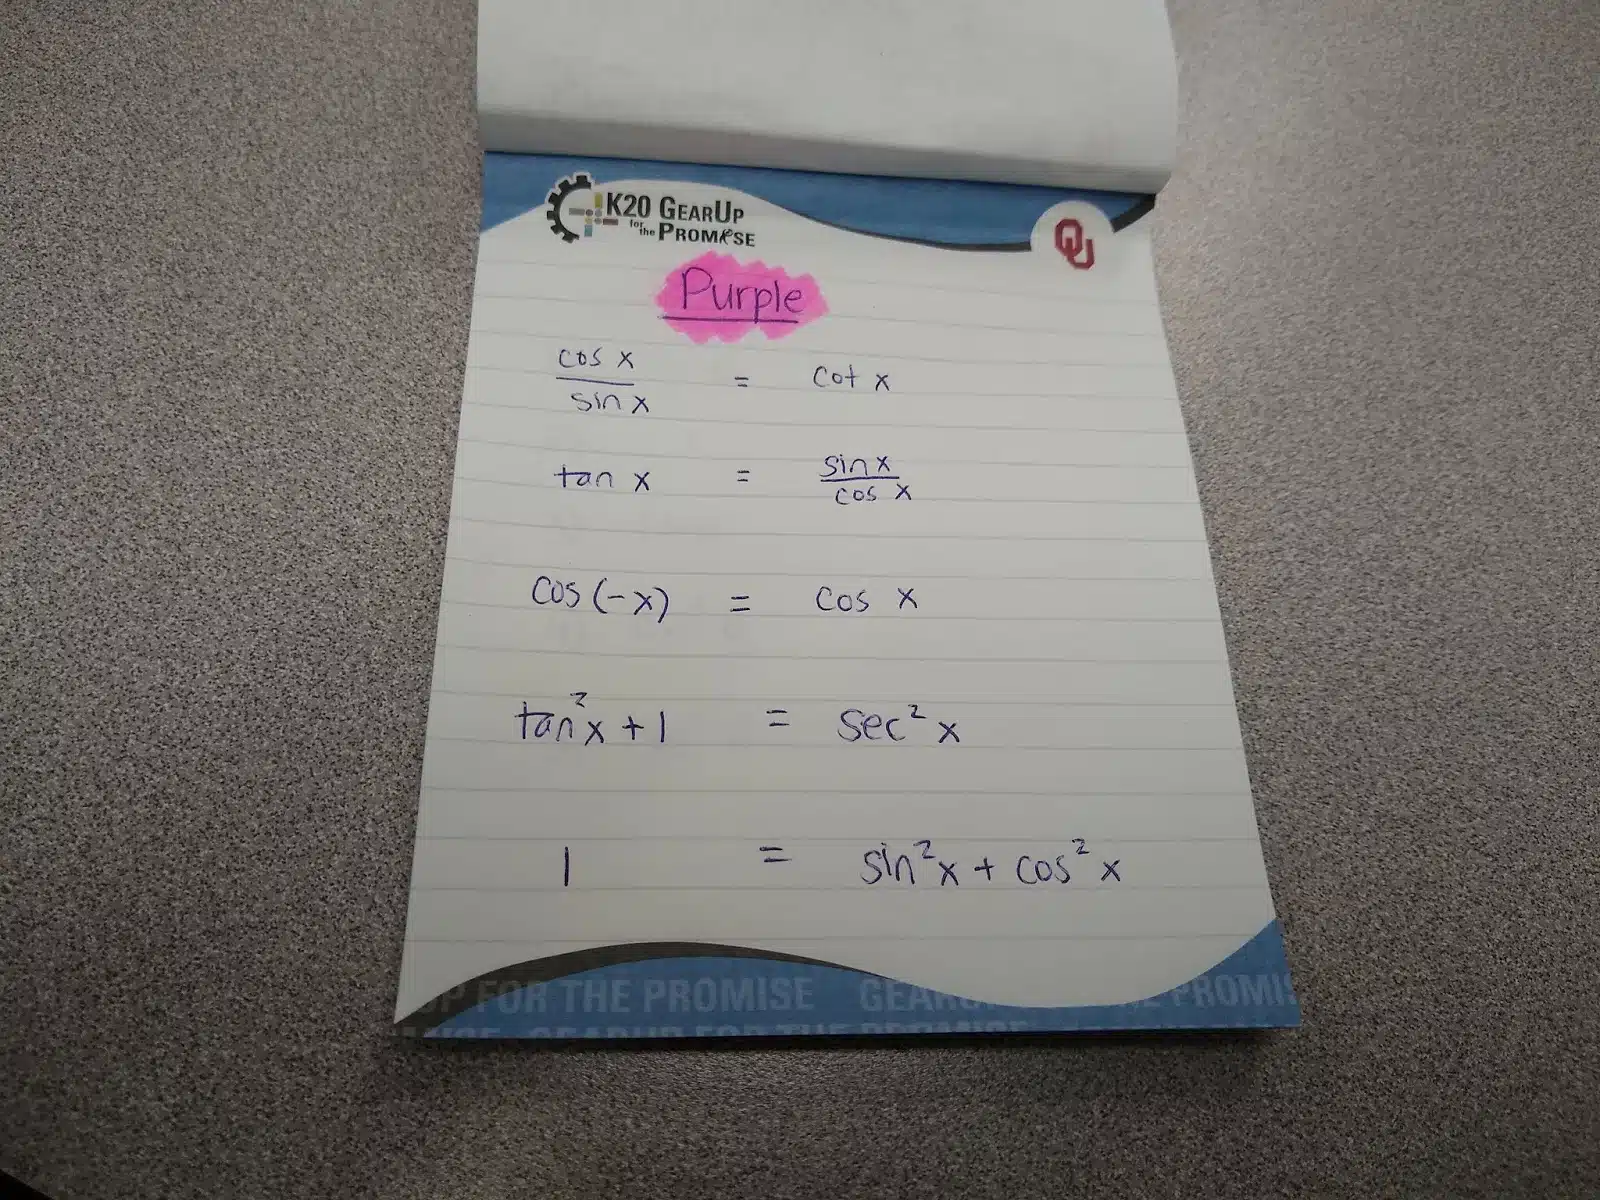 K20 GEARUP
for the PROMISE
OU
Purple
cos x / sin x = cot x
tan x = sin x / cos x
cos (-x) = cos x
tan²x + 1 = sec² x
1 = sin²x + cos² x
UP FOR THE PROMISE GEARU PROMIS
GEARUP FOR THE PROMISE